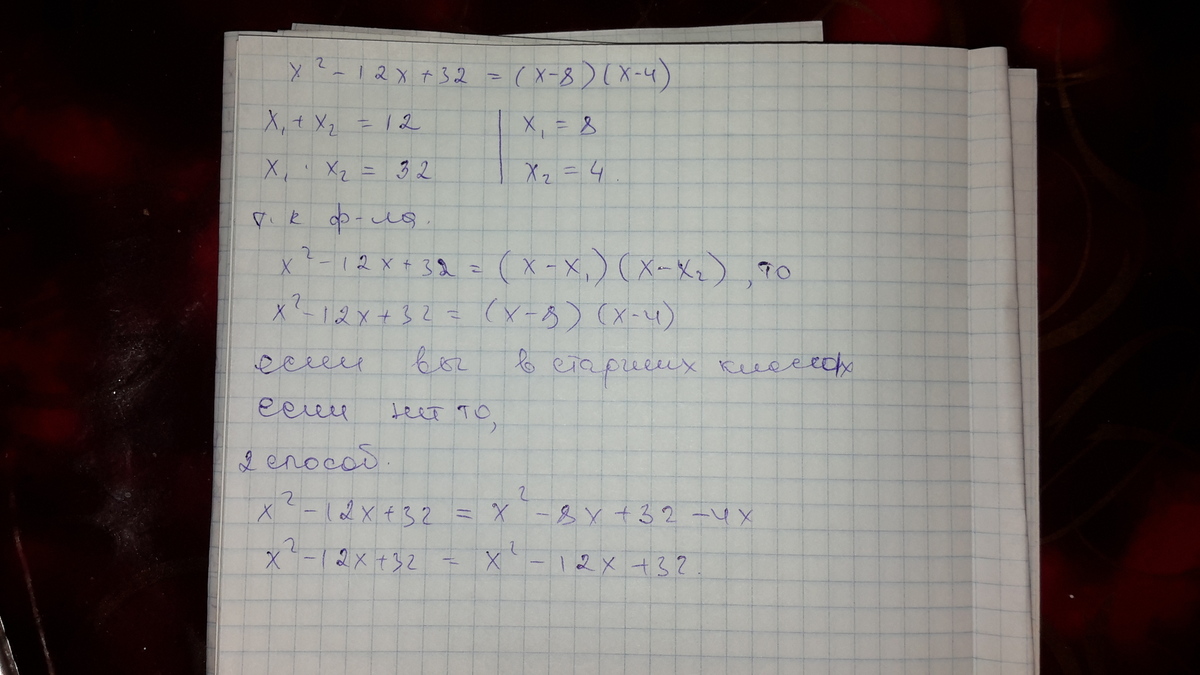 x² - 12x + 32 = (x-8)(x-4)
x₁ + x₂ = 12 | x₁ = 8
x₁ · x₂ = 32 | x₂ = 4.
т.к ф-ла.
x² - 12x + 32 = (x - x₁)(x - x₂), то
x² - 12x + 32 = (x-8)(x-4)
если вы в старших классах
если нет то,
2 способ.
x² - 12x + 32 = x² - 8x + 32 - 4x
x² - 12x + 32 = x² - 12x + 32.